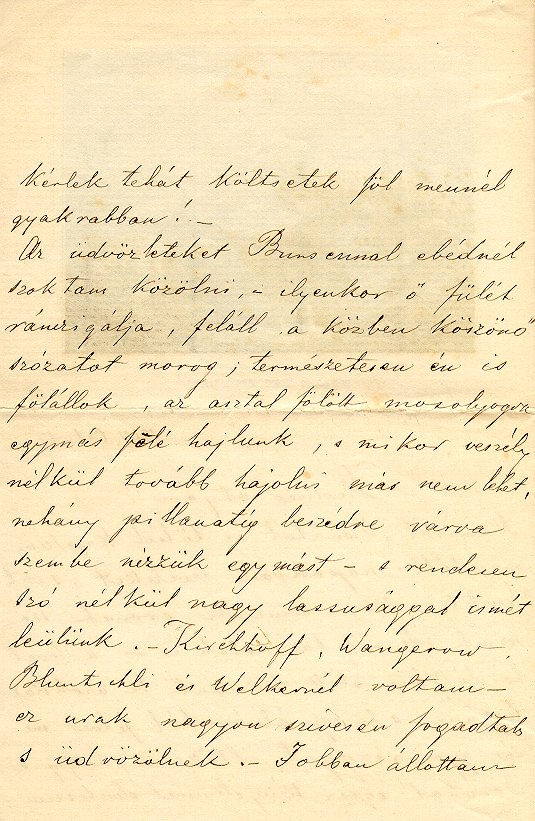 Kérlek tehát költsetek föl mennél
gyakrabban! –
Az üdvözleteket Bunsennal ebédnél
szoktam közölni, – ilyenkor ő fülét
ránczigálja, feláll a közben köszönő
szózatot morog; természetesen én is
fölállok, az asztal fölött mosolyogva
egymás felé hajlunk, s mikor veszély
nélkül tovább hajolni már nem lehet,
nehány pillanatig beszédre várva
szembe nézzük egymást – s rendesen
szó nélkül nagy lassusággal ismét
leülünk. – Kirchhoff, Wangerow,
Bluntschli és Welkernél voltam –
ez urak nagyon szivesen fogadtak
s üdvözölnek. – Jobban állottam